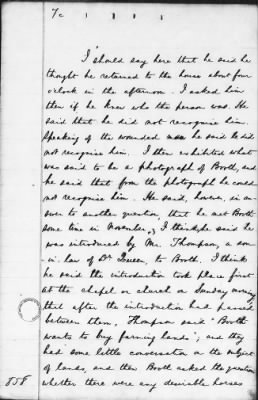 7c
I should say here that he said he
thought he returned to the house about four
o'clock in the afternoon. I asked him
then if he knew who the person was. He
said that he did not recognise him.
Speaking of the wounded man he said he did
not recognise him. I then exhibited what
was said to be a photograph of Booth, and
he said that from the photograph he could
not recognise him. He said, however, in an-
swer to another question, that he met Booth
some time in November. I think he said he
was introduced by Mr. Thompson, a son-
in-law of Dr Queen, to Booth. I think
he said the introduction took place first
at the chapel or church on Sunday morning
that after the introduction had passed
between them, Thompson said "Booth
wants to buy farming lands"; and they
had some little conversation on the subject
of lands, and then Booth asked the question
whether there were any desirable horses
858